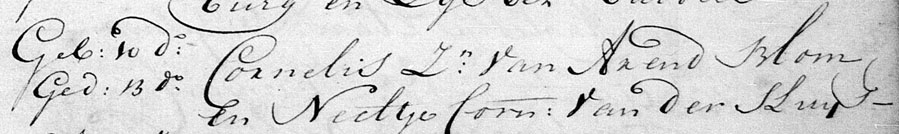 en
Geb: 10 do: Cornelis Zn: van Arend Blom
Ged: 13 do. en Neeltje Corn: van der Sluys